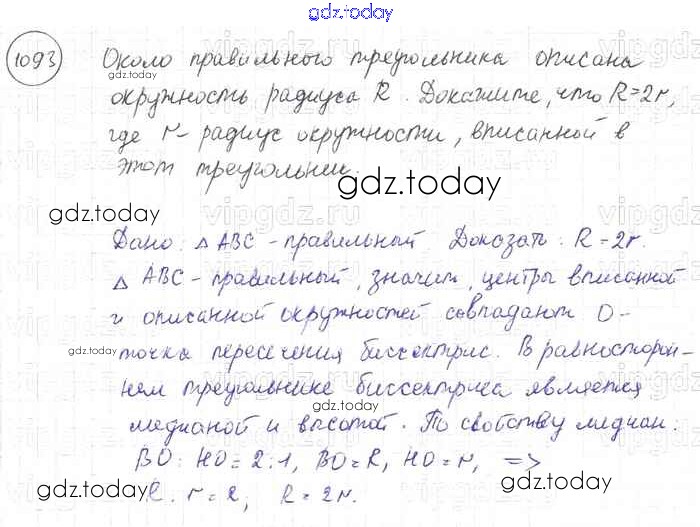 gdz.today
1093 Около правильного треугольника описана
gdz.today
окружность радиуса R. Докажите, что R=2r,
где r – радиус окружности, вписанной в
этот треугольник.
gdz.today
gdz.today
Дано: △ ABC – правильный Доказать: R = 2r.
△ ABC – правильный, значит, центры вписанной
gdz.today
и описанной окружностей совпадают O –
gdz.today
точка пересечения биссектрис. В равносторон-
нем треугольнике биссектриса является
gdz.today
медианой и высотой. По свойству медиан:
gdz.today
BO : HO = 2:1, BO = R, HO = r, =>
gdz.today
R : r = 2, R = 2r.
gdz.today